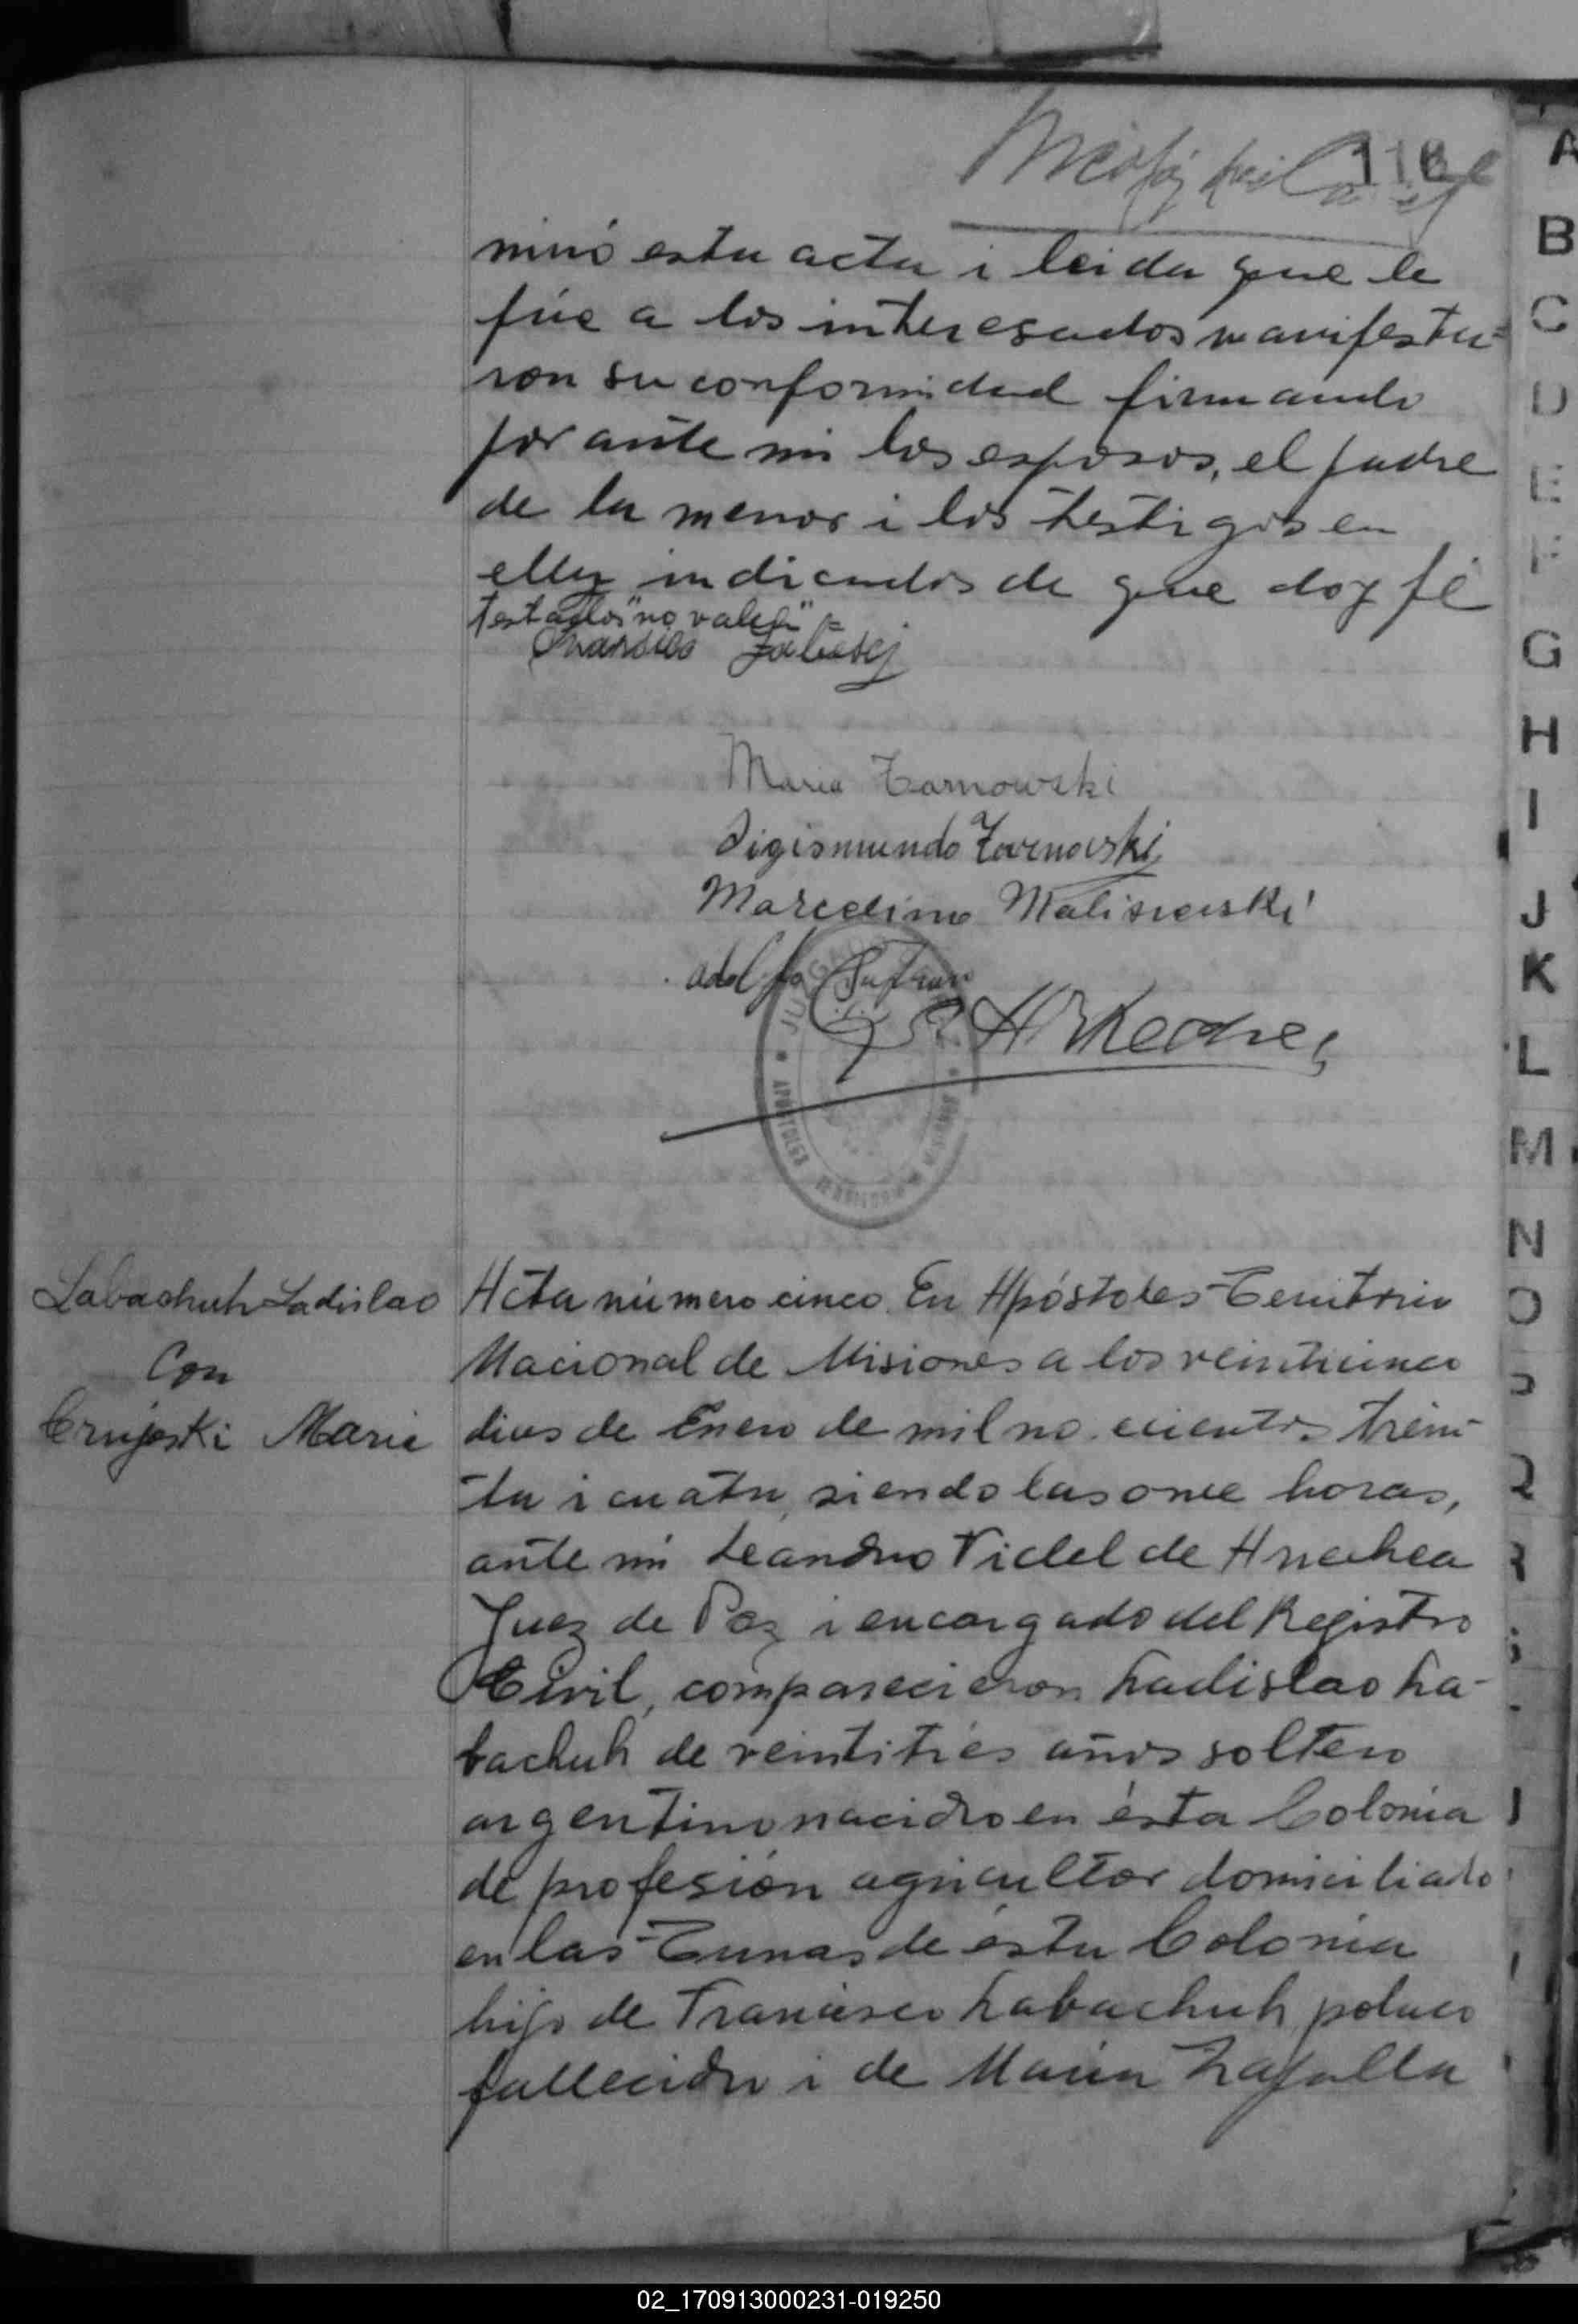 116
minó esta acta i leida que le
fúe a los interesados manifesta=
ron su conformidad firmando
por ante mi los esposos, el padre
de la menor i los testigos en
ella indicados de que doy fé
Testados "no vale" =
Maria Tarnowski
Sigismundo Tarnowski
Marcelino Malisievski
Adolfo
JUZGADO
APÓSTOLES MISIONES
Labachuh Ladislao
Con
Crujeski Maria
Acta número cinco. En Apóstoles Territorio
Nacional de Misiones a los veinticinco
dias de Enero de mil novecientos trein-
ta i cuatro, siendo las once horas,
ante mi Leandro Videl de
Juez de Paz i encargado del Registro
Civil, comparecieron Ladislao La-
bachuh de veintitrés años soltero
argentino nacido en ésta Colonia
de profesión agricultor domiciliado
en las Tunas de ésta Colonia
hijo de Francisco Labachuh polaco
fallecido i de Maria
A
B
C
D
E
F
G
H
I
J
K
L
M
N
O
02_170913000231-019250